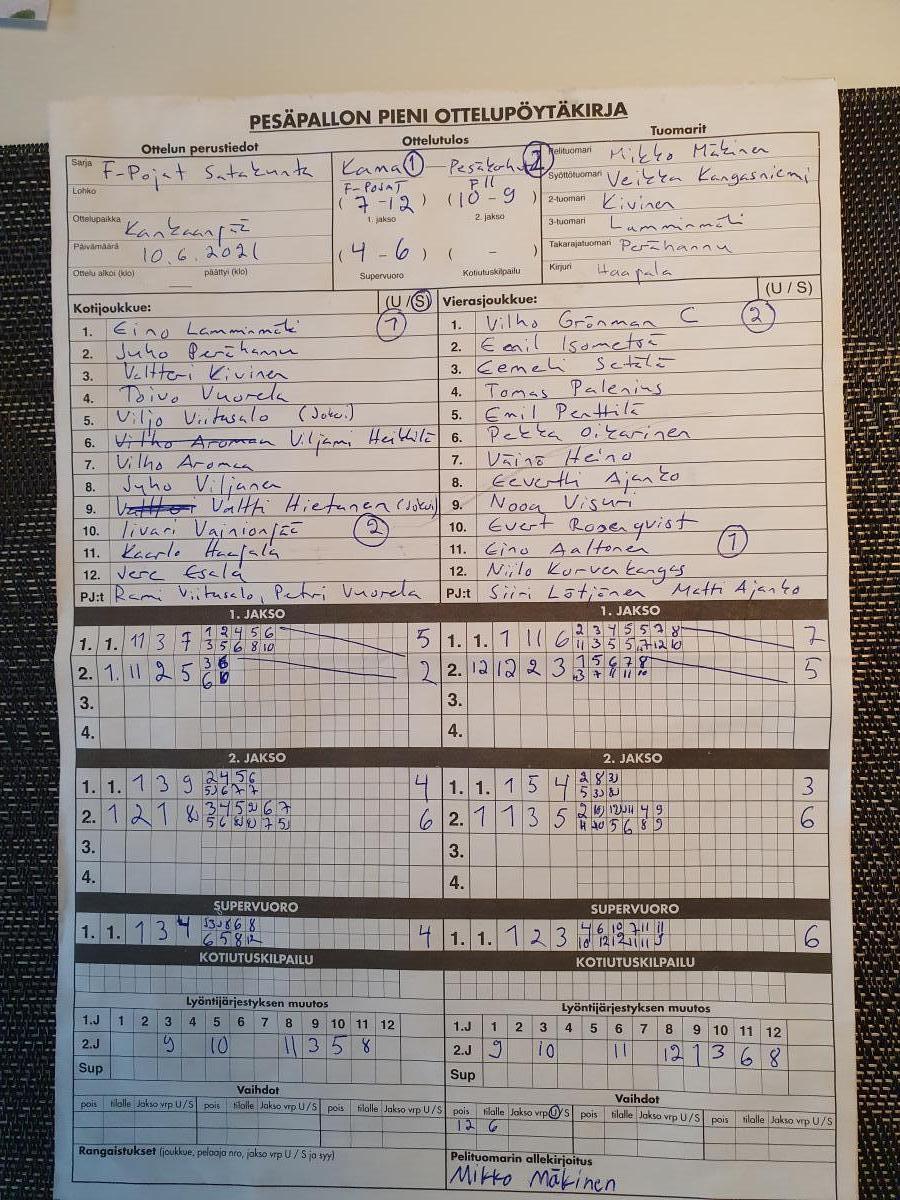 PESÄPALLON PIENI OTTELUPÖYTÄKIRJA
Ottelun perustiedot
Ottelutulos
Tuomarit
Sarja F-Pojat Satakunta
Kama 1 - 2
F-POJAT P11
(7-12) (10-9)
1. jakso 2. jakso
(4-6) ( - )
Supervuoro Kotiutuskilpailu
Lohko
Ottelupaikka Kankaanpää
Päivämäärä 10.6.2021
Ottelu alkoi (klo) päättyi (klo)
Pelituomari Mikko Mäkinen
Syöttötuomari Veikka Kangasniemi
2-tuomari Kivinen
3-tuomari Lamminmäki
Takarajatuomari Perähannu
Kirjuri Haapala
Kotijoukkue: (U / S)
1. Eino Lamminmäki 1
2. Juho Perähannu
3. Valtteri Kivinen
4. Toivo Vuorela
5. Viljo Viitasalo (Jokeri)
6. Vilho Aroman Viljami Heikkilä
7. Vilho Aroman
8. Jyho Viljanen
9. Valtteri Valtti Hietanen (Jokeri)
10. Iivari Vainionpää 2
11. Kaarlo Haapala
12. Jere Esala
PJ:t Rami Viitasalo, Petri Vuorela
Vierasjoukkue: (U / S)
1. Vilho Grönman C 2
2. Eemil Isometsä
3. Eemeli Setälä
4. Tomas Palenius
5. Emil Penttilä
6. Pekka Oikarinen
7. Väinö Heino
8. Eevertti Ajanko
9. Nooa Visuri
10. Evert Rosenqvist
11. Eino Aaltonen 1
12. Niilo Korvenkangas
PJ:t Siiri Lötjönen Matti Ajanko
1. JAKSO
1. 1. 11 3 7 5
2. 1. 11 2 5 2
3.
4.
1. JAKSO
1. 1. 1 11 6 7
2. 12 12 2 3 5
3.
4.
2. JAKSO
1. 1. 1 3 9 4
2. 1 2 1 8 6
3.
4.
2. JAKSO
1. 1. 1 5 4 3
2. 1 1 3 5 6
3.
4.
SUPERVUORO
1. 1. 1 3 4 4
SUPERVUORO
1. 1. 1 2 3 6
KOTIUTUSKILPAILU
KOTIUTUSKILPAILU
Lyöntijärjestyksen muutos
1.J 1 2 3 4 5 6 7 8 9 10 11 12
2.J 9 10 11 3 5 8
Sup
Lyöntijärjestyksen muutos
1.J 1 2 3 4 5 6 7 8 9 10 11 12
2.J 9 10 11 12 1 3 6 8
Sup
Vaihdot
pois tilalle Jakso vrp U / S pois tilalle Jakso vrp U / S pois tilalle Jakso vrp U / S
Vaihdot
pois tilalle Jakso vrp U / S pois tilalle Jakso vrp U / S pois tilalle Jakso vrp U / S
12 6
Rangaistukset (joukkue, pelaaja nro, jakso vrp U / S ja syy)
Pelituomarin allekirjoitus
Mikko Mäkinen